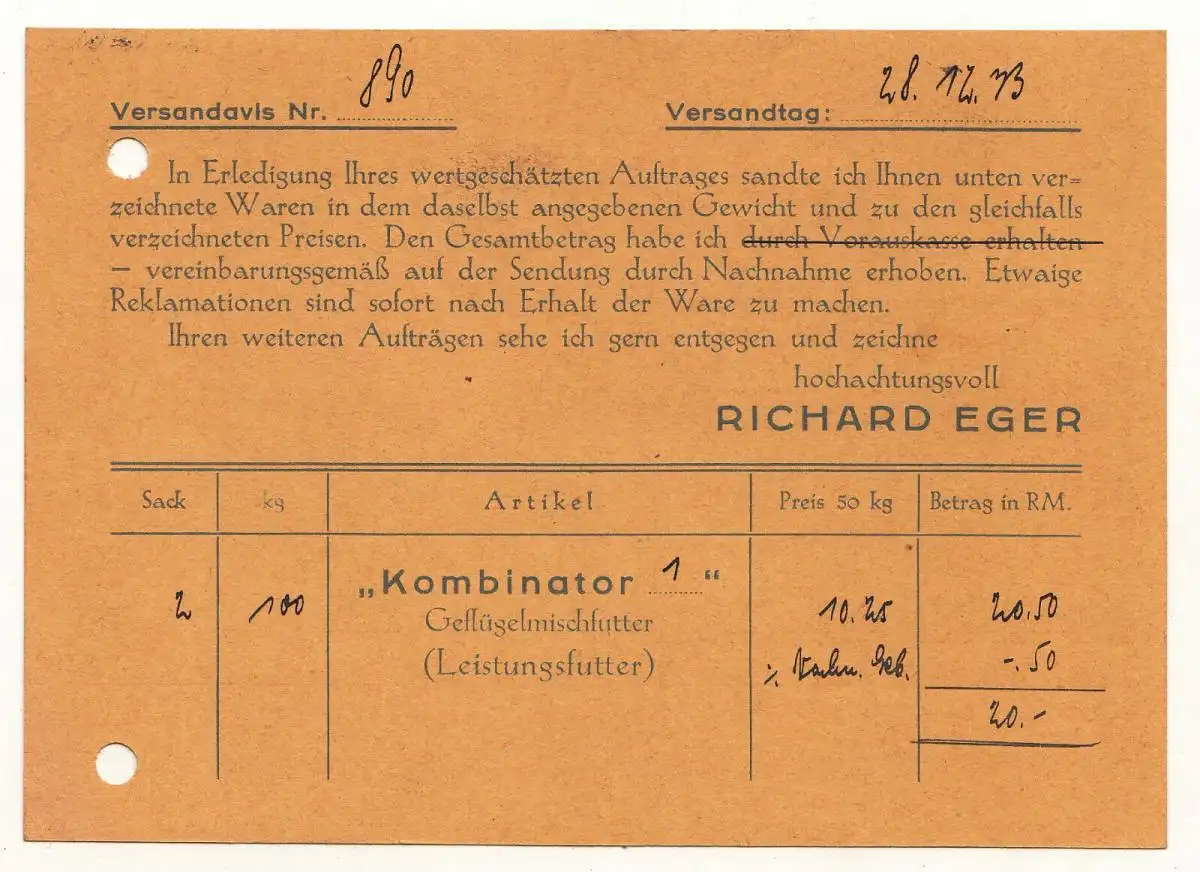 Versandavis Nr. 890 Versandtag: 28. 12. 33
In Erledigung Ihres wertgeschätzten Auftrages sandte ich Ihnen unten ver=
zeichnete Waren in dem daselbst angegebenen Gewicht und zu den gleichfalls
verzeichneten Preisen. Den Gesamtbetrag habe ich durch Vorauskasse erhalten
— vereinbarungsgemäß auf der Sendung durch Nachnahme erhoben. Etwaige
Reklamationen sind sofort nach Erhalt der Ware zu machen.
Ihren weiteren Aufträgen sehe ich gern entgegen und zeichne
hochachtungsvoll
RICHARD EGER
Sack kg Artikel Preis 50 kg Betrag in RM.
„Kombinator 1“
2 100 Geflügelmischfutter 10.25 20.50
(Leistungsfutter) ./. Nachn. Geb. -.50
20.-